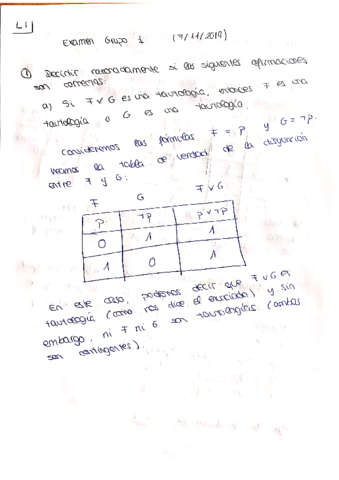 L1
Examen Grupo 1 (7/11/2019)
① Decidir razonadamente si las siguientes afirmaciones
son correctas:
a) Si F∨G es una tautología, entonces F es una
tautología o G es una tautología.
Consideremos las fórmulas F = p y G = ¬p.
Veamos la tabla de verdad de la disyunción
entre F y G:
F G F∨G
p ¬p p∨¬p
0 1 1
1 0 1
En este caso, podemos decir que F∨G es
tautología (como nos dice el enunciado) y sin
embargo, ni F ni G son tautologías. (ambas
son contingentes).